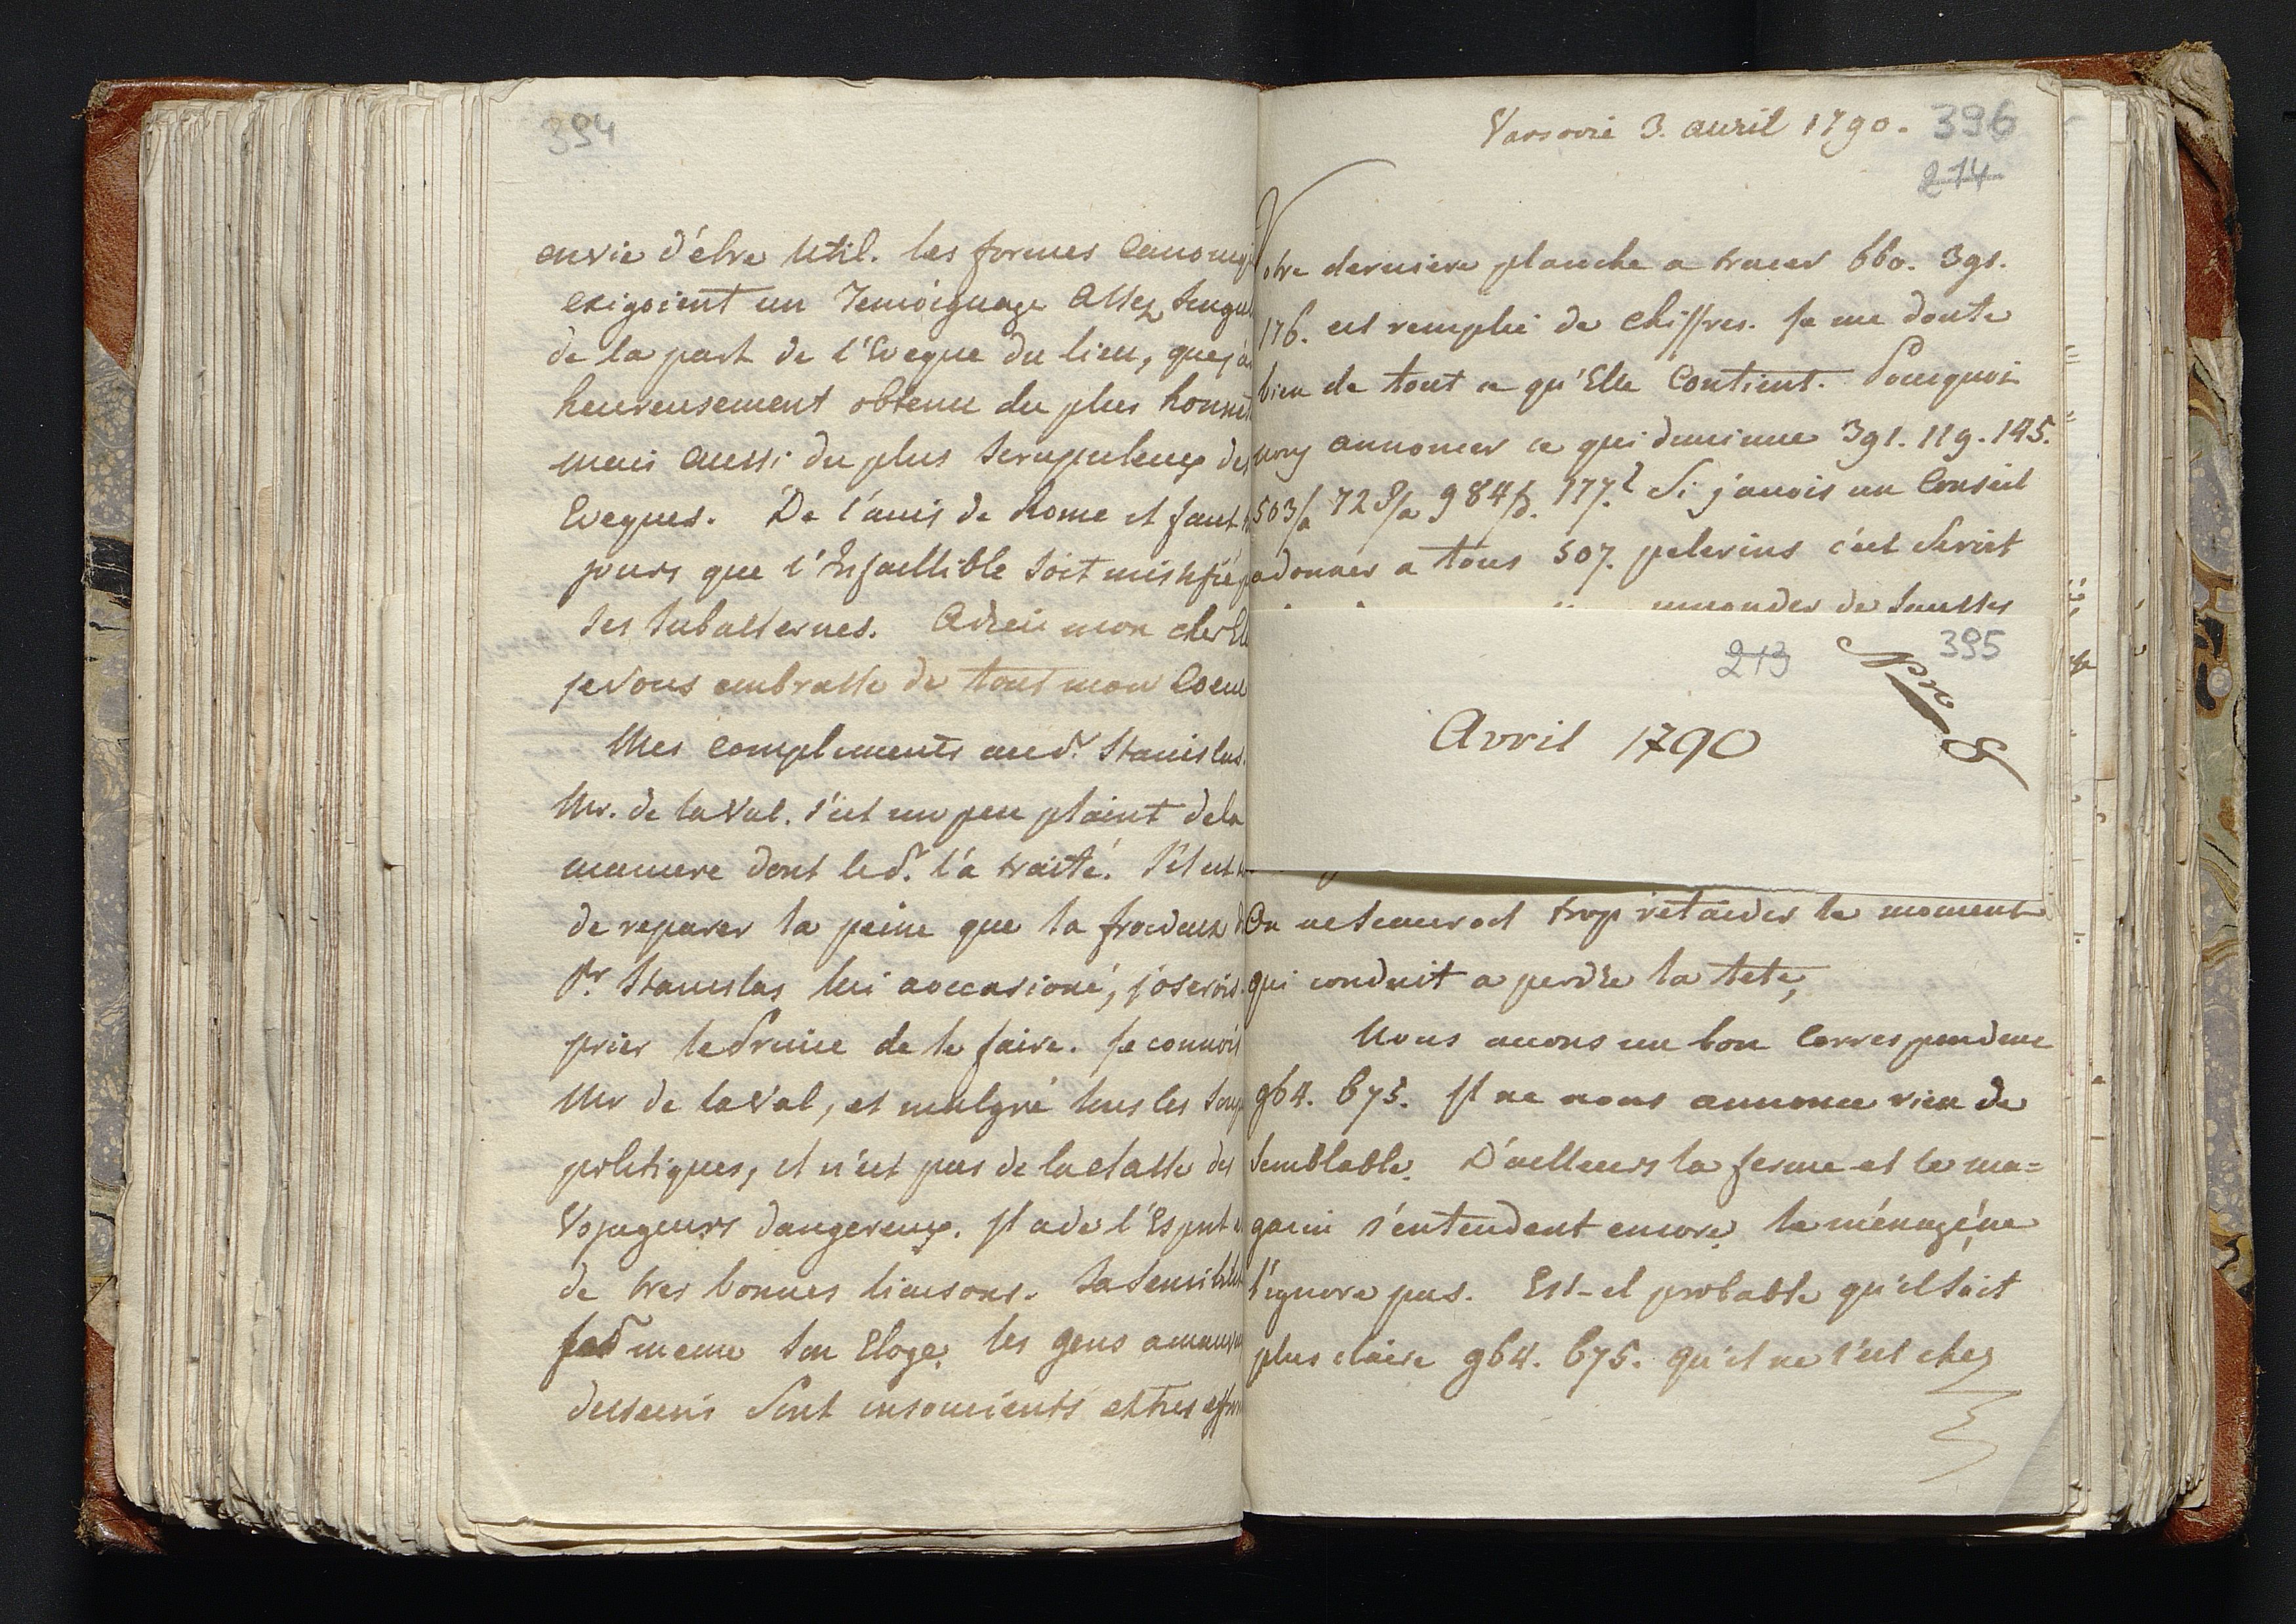 394
envie d'être util. les formes
exigoient un Temoignage assez
de la part de l'Eveque du lieu, que j'ai
heureusement obtenu du plus
mais aussi du plus scrupuleux des
Eveques. De l'avis de Rome il faut
jours que l'Infaillible soit
ses subalternes. Adieu mon cher
je vous embrasse de tout mon Coeur
Mes compliments au dr. Stanislas.
Mr. de laVal. s'est un peu plaint dela
maniere dont le dr. l'a traité. S'il est
de reparer la peine que la froideur
Pr Stanislas lui a occasioné, j'oserois
prier le Prince de le faire. Je connois
Mr de laVal, et malgré tous les
politiques, il n'est pas de la classe des
Voyageurs dangereux. Il a de l'Esprit
de tres bonnes liaisons. Sa
meme son Eloge, les gens
desseins sont insoucients et tres
Varsovie 3. avril 1790. 396
214
Votre derniere planche a tracer 660. 391.
176. est remplie de chiffres. Je me doute
bien de tout ce qu'Elle Contient. Pourquoi
nous annoncer ce qui 391. 119. 145.
503/a 728/a 984/b. 177.? Si j'avois un Conseil
a donner a tous 507. pelerins c'est
de fausses
213 395
Avril 1790
On ne scauroit trop retarder le moment
qui conduit a perdre la tete,
Nous avons un bon Correspondent
964. 675. Il ne nous annonce rien de
semblable. D'ailleurs la ferme et le ma=
gazin s'entendent encore, le ne
l'ignore pas. Est-il probable qu'il soit
plus claire 964. 675. qu'il ne l'est chez